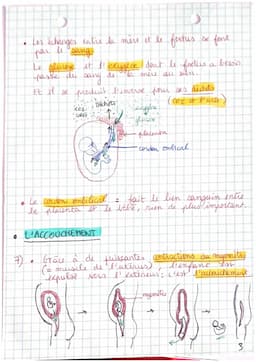 • Les échanges entre la mère et le foetus se font
par le sang.
Le glucose et l'oxygène dont le foetus a besoin
passe du sang de la mère au sien.
Et il se produit l'inverse pour ses déchets
(CO2 et l'urée)
CO2
urée
Déchets
oxygène
glucose
placenta
cordon ombilical
• Le cordon ombilical = fait le lien sanguin entre
le placenta et le bébé, rien de plus important.
• L'ACCOUCHEMENT
7) • Grâce à de puissantes contractions du myomètre
(= muscle de l'utérus), l'enfant est
expulsé vers l'extérieur : c'est l'accouchement
myomètre
3